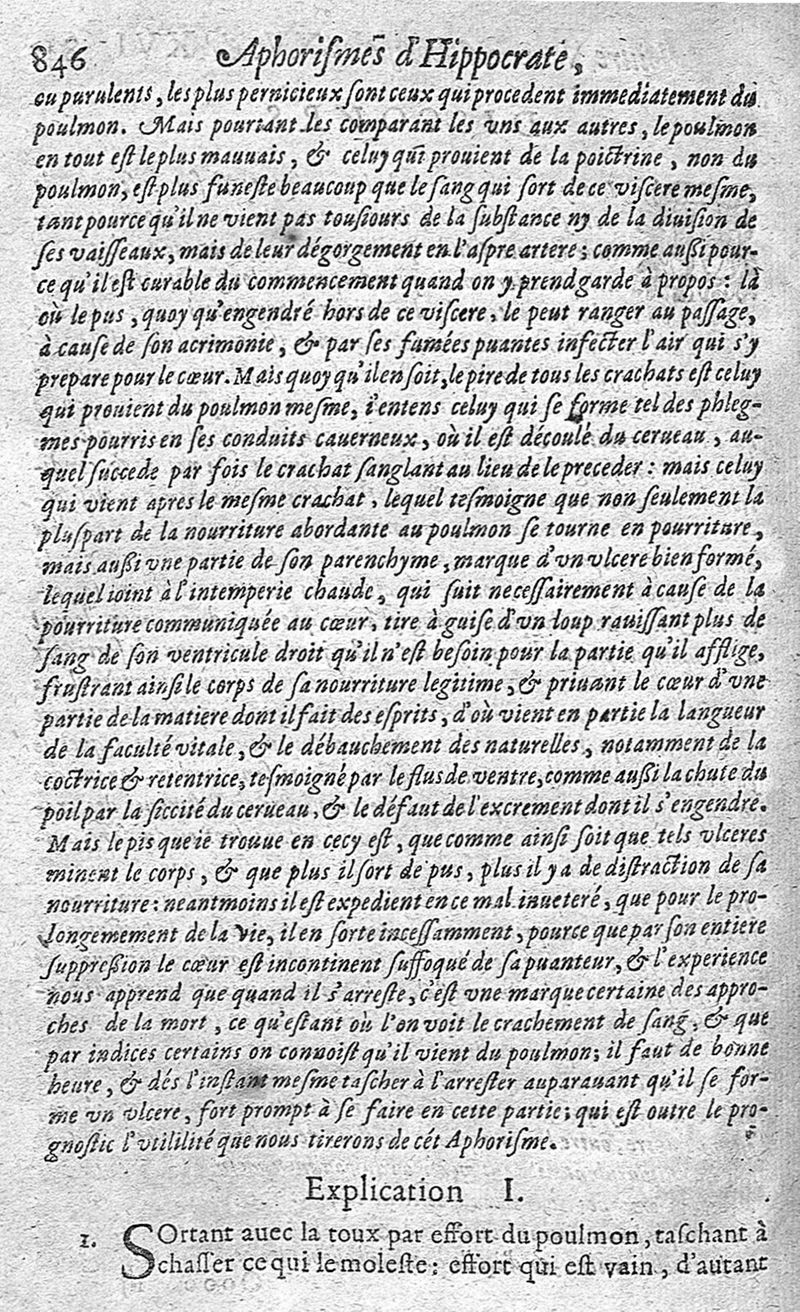 846 Aphoriſmes d'Hippocrate,
ou purulents, les plus pernicieux ſont ceux qui procedent immediatement du
poulmon. Mais pourtant les comparant les vns aux autres, le poulmon
en tout eſt le plus mauuais, & celuy qui prouient de la poictrine, non du
poulmon, eſt plus funeſte beaucoup que le ſang qui ſort de ce viſcere meſme,
tant pource qu'il ne vient pas touſiours de la ſubſtance ny de la diuiſion de
ſes vaiſſeaux, mais de leur dégorgement en l'aſpre artere; comme außi pour-
ce qu'il eſt curable du commencement quand on y prend garde à propos: là
où le pus, quoy qu'engendré hors de ce viſcere, le peut ranger au paſſage,
à cauſe de ſon acrimonie, & par ſes fumées puantes infecter l'air qui s'y
prepare pour le cœur. Mais quoy qu'il en ſoit, le pire de tous les crachats eſt celuy
qui prouient du poulmon meſme, i'entens celuy qui ſe forme tel des phleg-
mes pourris en ſes conduits cauerneux, où il eſt découlé du cerueau, au-
quel ſuccede par fois le crachat ſanglant au lieu de le preceder: mais celuy
qui vient apres le meſme crachat, lequel teſmoigne que non ſeulement la
pluſpart de la nourriture abordante au poulmon ſe tourne en pourriture,
mais außi vne partie de ſon parenchyme, marque d'vn vlcere bien formé,
lequel ioint à l'intemperie chaude, qui ſuit neceſſairement à cauſe de la
pourriture communiquée au cœur, tire à guiſe d'vn loup rauiſſant plus de
ſang de ſon ventricule droit qu'il n'eſt beſoin pour la partie qu'il afflige,
fruſtrant ainſi le corps de ſa nourriture legitime, & priuant le cœur d'vne
partie de la matiere dont il fait des eſprits, d'où vient en partie la langueur
de la faculté vitale, & le débauchement des naturelles, notamment de la
coctrice & retentrice, teſmoigné par le flus de ventre, comme außi la chute du
poil par la ſiccité du cerueau, & le défaut de l'excrement dont il s'engendre.
Mais le pis que ie trouue en cecy eſt, que comme ainſi ſoit que tels vlceres
minent le corps, & que plus il ſort de pus, plus il y a de diſtraction de ſa
nourriture: neantmoins il eſt expedient en ce mal inueteré, que pour le pro-
longemement de la vie, il en ſorte inceſſamment, pource que par ſon entiere
ſuppreßion le cœur eſt incontinent ſuffoqué de ſa puanteur, & l'experience
nous apprend que quand il s'arreſte, c'eſt vne marque certaine des appro-
ches de la mort, ce qu'eſtant où l'on voit le crachement de ſang, & que
par indices certains on connoiſt qu'il vient du poulmon; il faut de bonne
heure, & dés l'inſtant meſme taſcher à l'arreſter auparauant qu'il ſe for-
me vn vlcere, fort prompt à ſe faire en cette partie; qui eſt outre le pro-
gnoſtic l'vtililité que nous tirerons de cét Aphoriſme.
Explication I.
1. SOrtant auec la toux par effort du poulmon, taſchant à
chaſſer ce qui le moleſte: effort qui eſt vain, d'autant